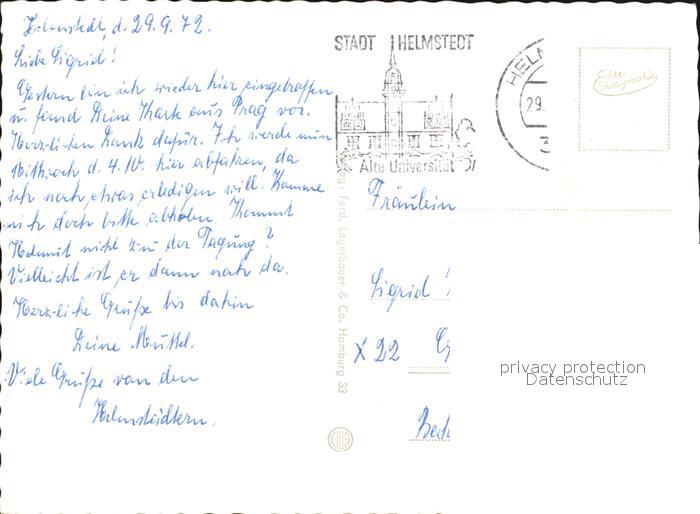 Helmstedt, d. 29.9.72.
Liebe Sigrid!
Gestern bin ich wieder hier eingetroffen
u. fand Deine Karte aus Prag vor.
Herzlichen Dank dafür. Ich werde nun
Mittwoch d. 4.10. hier abfahren, da
ich noch etwas erledigen will. Komme
mich doch bitte abholen. Kommt
Helmut nicht zu der Tagung?
Vielleicht ist er dann noch da.
Herzliche Grüße bis dahin
Deine Mutti.
Viele Grüße von den
Helmstedtern.
STADT HELMSTEDT
Alte Universität
HELM
29.
Echte Photographie
Verlag: Ferd. Lagerbauer & Co. Hamburg 33
Fräulein
Sigrid
X 22
privacy protection
Datenschutz